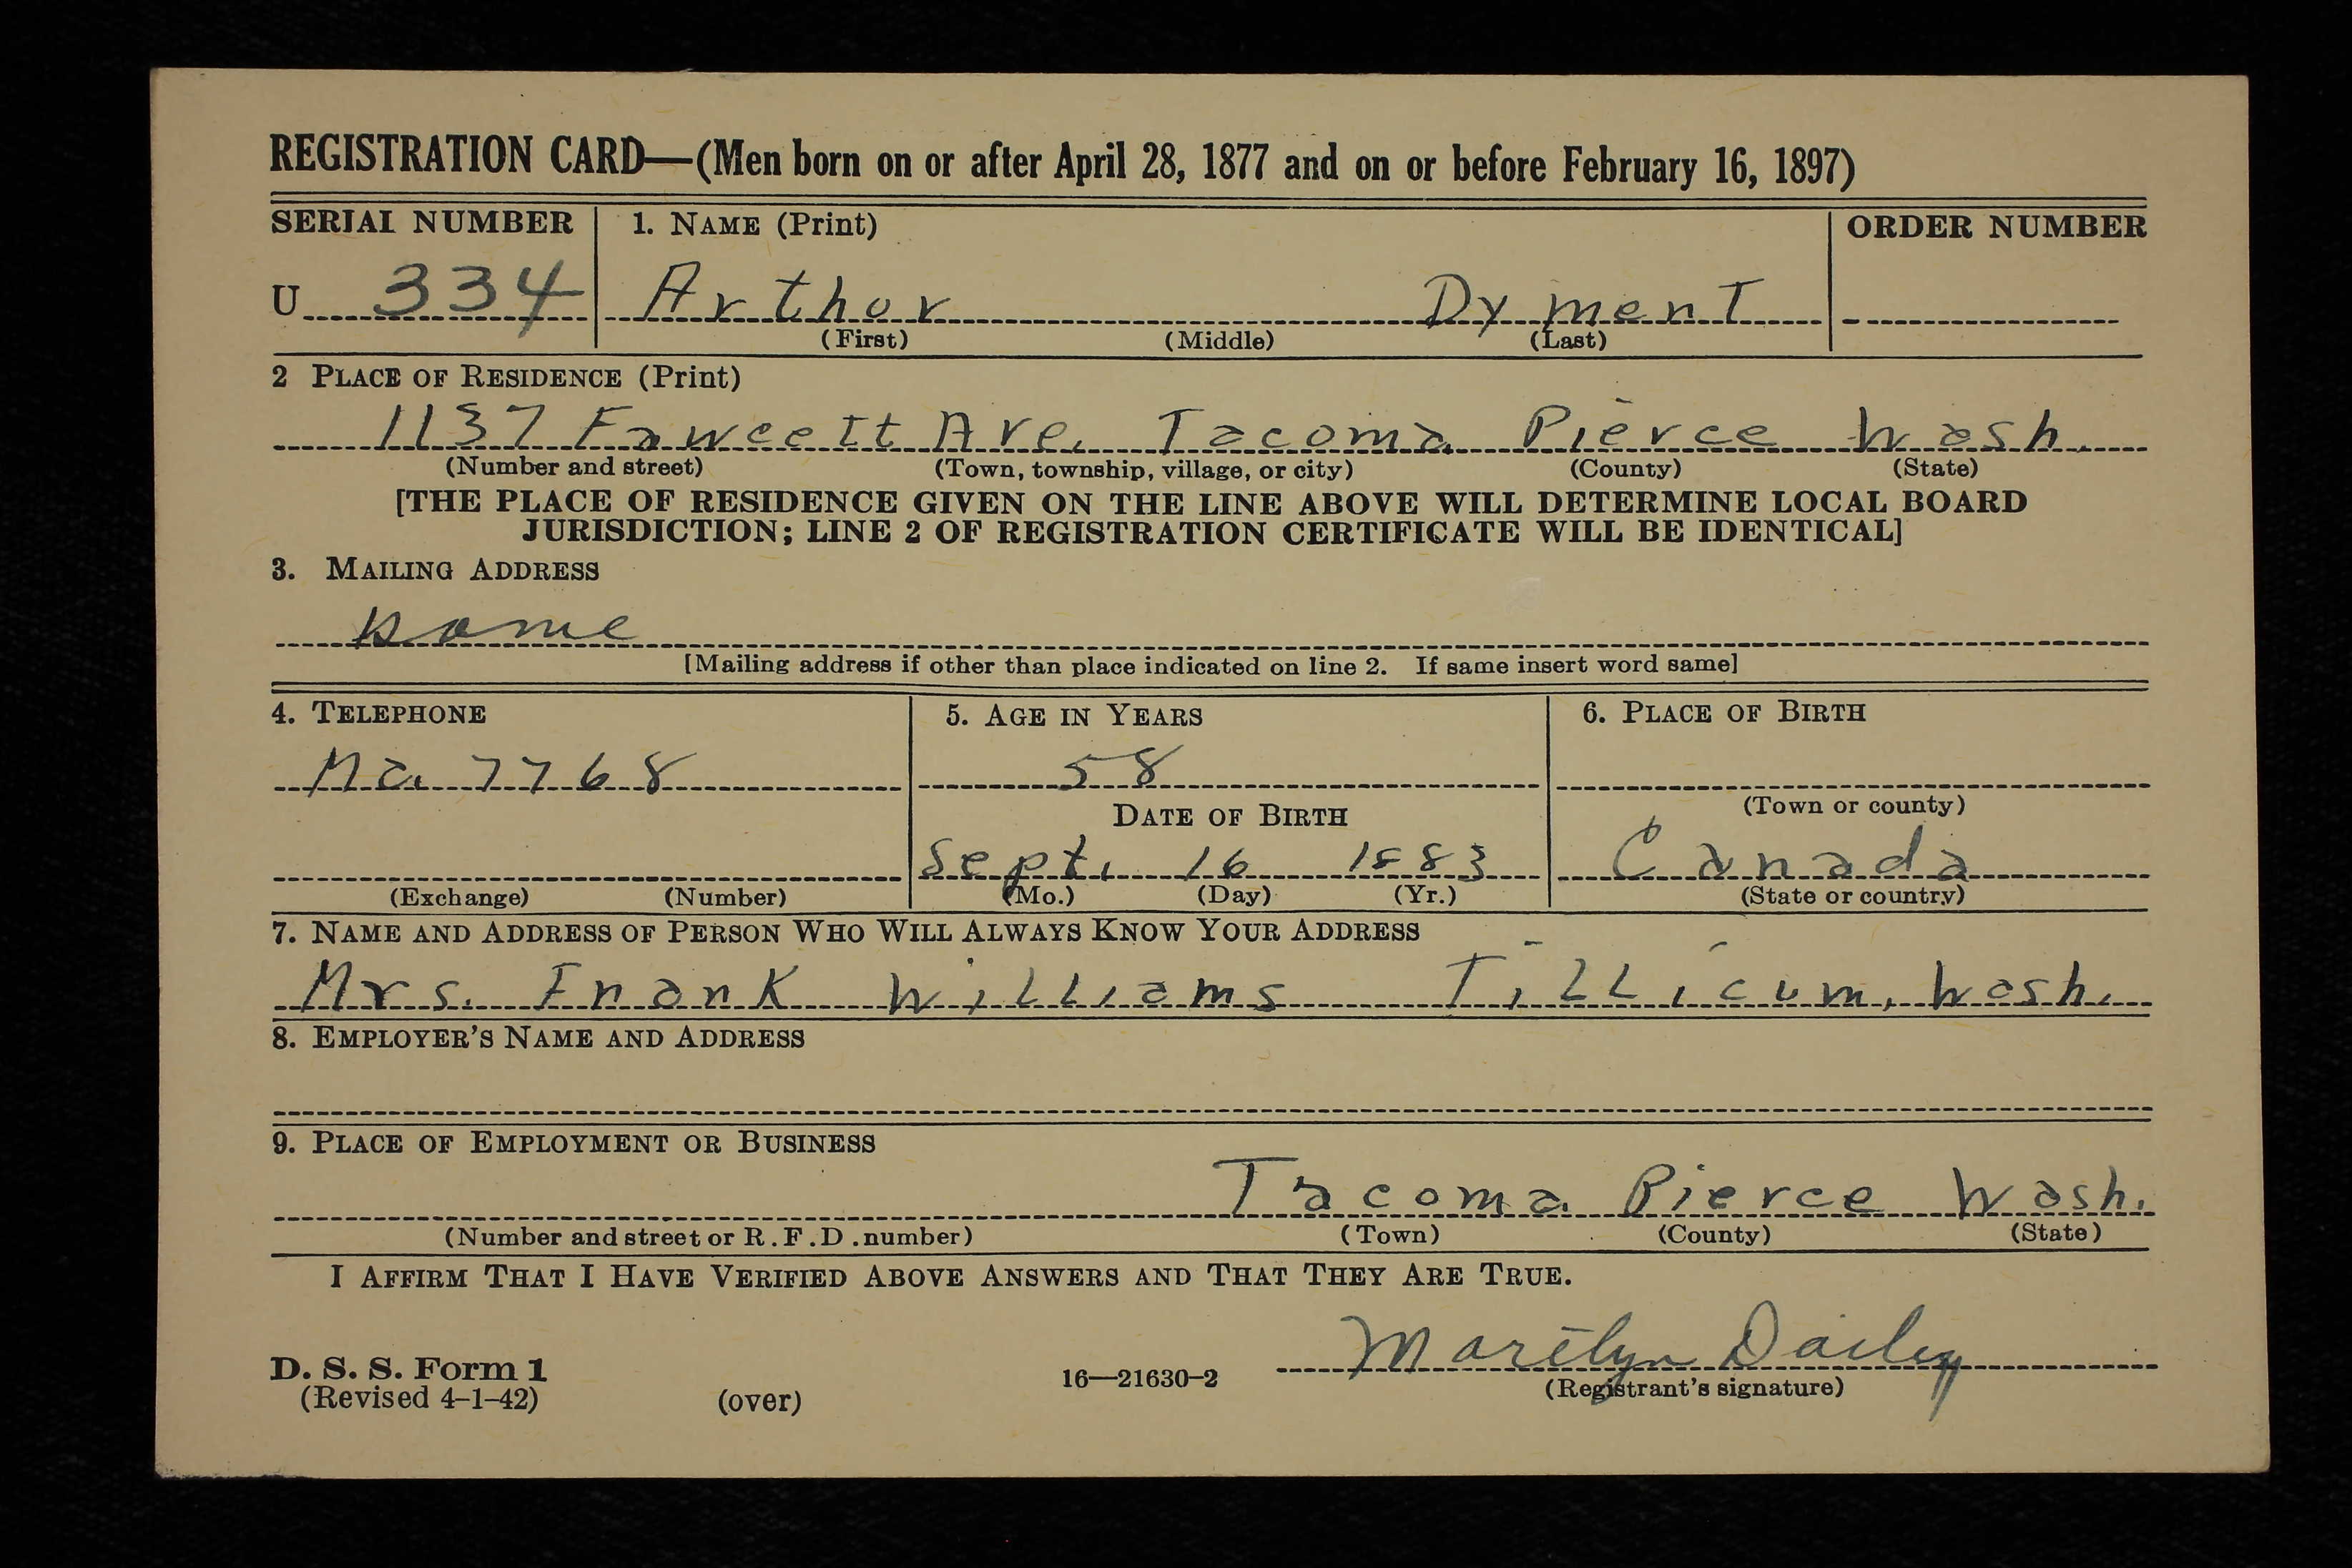 REGISTRATION CARD—(Men born on or after April 28, 1877 and on or before February 16, 1897)
SERIAL NUMBER 1. NAME (Print) ORDER NUMBER
U 334 Arthur Dyment
(First) (Middle) (Last)
2 PLACE OF RESIDENCE (Print)
1137 Fawcett Ave. Tacoma Pierce Wash.
(Number and street) (Town, township, village, or city) (County) (State)
[THE PLACE OF RESIDENCE GIVEN ON THE LINE ABOVE WILL DETERMINE LOCAL BOARD
JURISDICTION; LINE 2 OF REGISTRATION CERTIFICATE WILL BE IDENTICAL]
3. MAILING ADDRESS
same
[Mailing address if other than place indicated on line 2. If same insert word same]
4. TELEPHONE 5. AGE IN YEARS 6. PLACE OF BIRTH
Ma. 7768 58
(Town or county)
DATE OF BIRTH
Sept. 16 1883 Canada
(Exchange) (Number) (Mo.) (Day) (Yr.) (State or country)
7. NAME AND ADDRESS OF PERSON WHO WILL ALWAYS KNOW YOUR ADDRESS
Mrs. Frank Williams Tillicum, Wash.
8. EMPLOYER'S NAME AND ADDRESS
9. PLACE OF EMPLOYMENT OR BUSINESS
Tacoma Pierce Wash.
(Number and street or R.F.D. number) (Town) (County) (State)
I AFFIRM THAT I HAVE VERIFIED ABOVE ANSWERS AND THAT THEY ARE TRUE.
Marilyn Dailey
D. S. S. Form 1 16—21630-2 (Registrant's signature)
(Revised 4-1-42) (over)